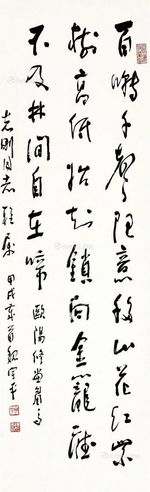 百啭千声随意移山花红紫
树高低始知锁向金笼听
不及林间自在啼 欧阳修画眉鸟
志刚同志雅属
甲戌春月